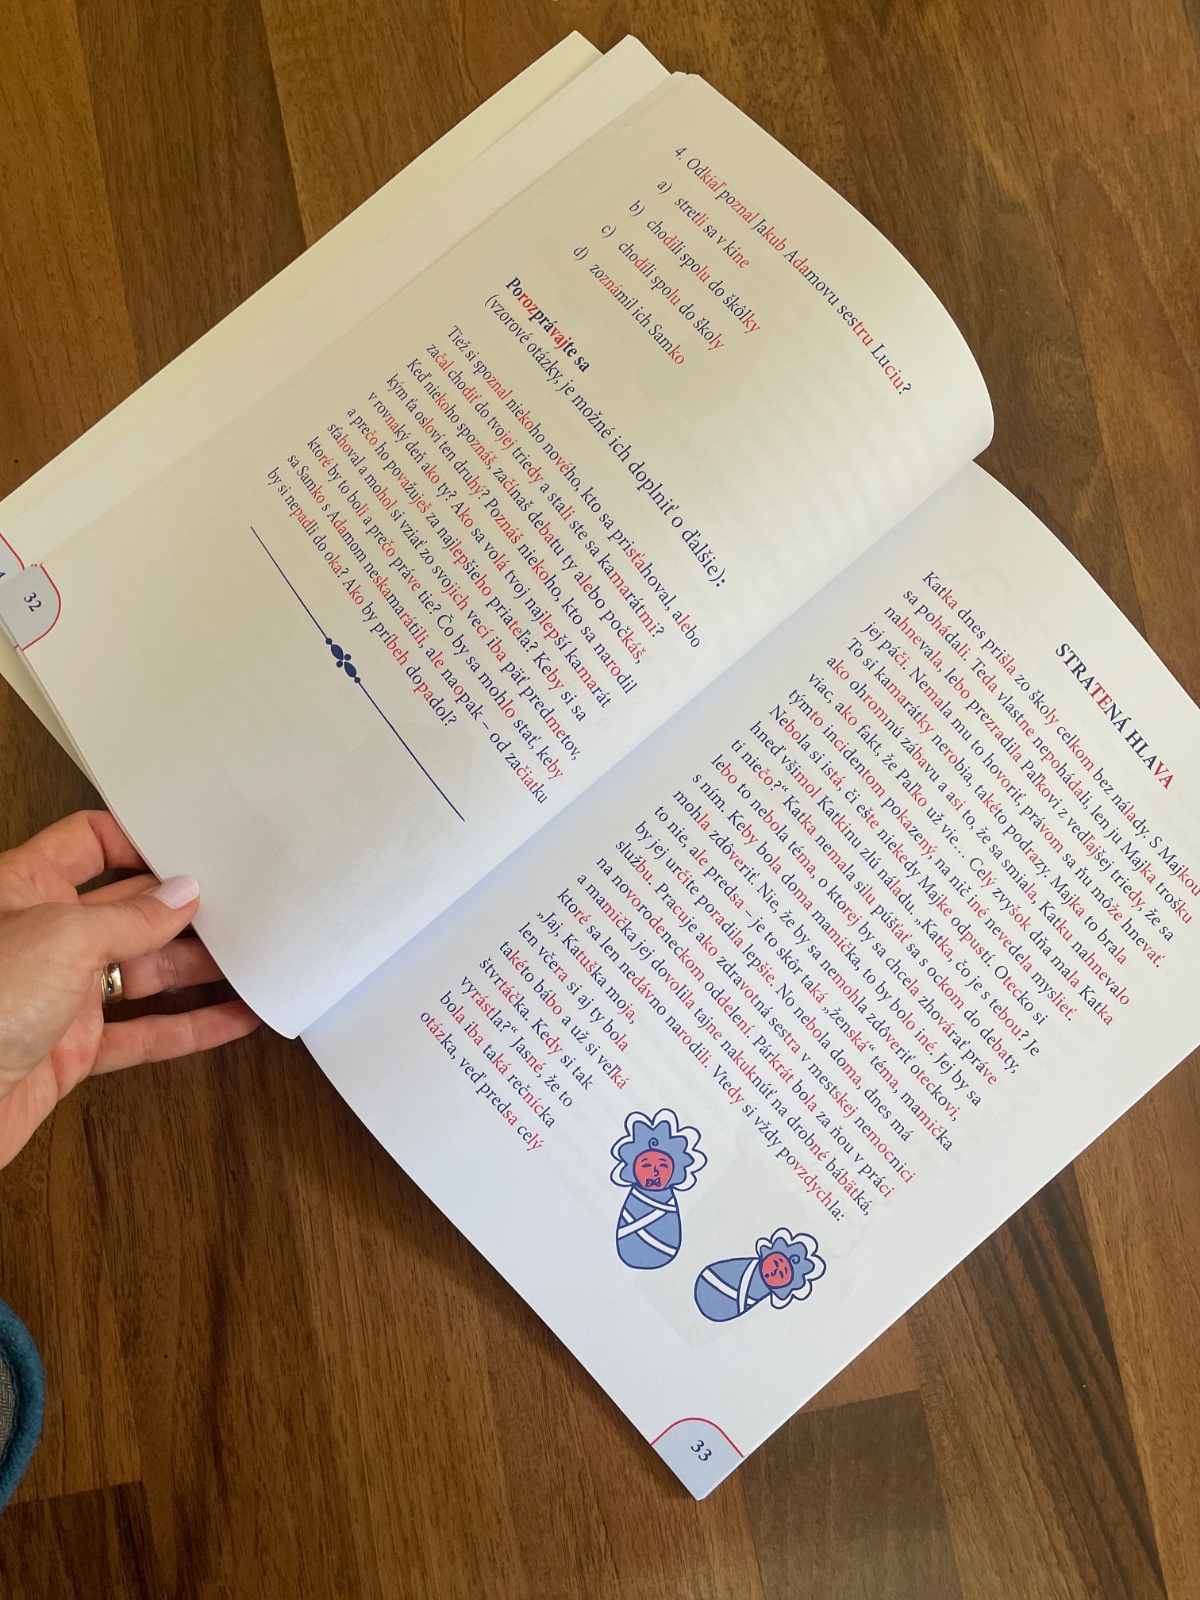 4. Odkiaľ poznal Jakub Adamovu sestru Luciu?
a) stretli sa v kine
b) chodili spolu do škôlky
c) chodili spolu do školy
d) zoznámil ich Samko
Porozprávajte sa
(vzorové otázky, je možné ich doplniť o ďalšie):
Tiež si spoznal niekoho nového, kto sa prisťahoval, alebo
začal chodiť do tvojej triedy a stali ste sa kamarátmi?
Keď niekoho spoznáš, začínaš debatu ty alebo počkáš,
kým ťa osloví ten druhý? Poznáš niekoho, kto sa narodil
v rovnaký deň ako ty? Ako sa volá tvoj najlepší kamarát
a prečo ho považuješ za najlepšieho priateľa? Keby si sa
sťahoval a mohol si vziať zo svojich vecí iba päť predmetov,
ktoré by to boli a prečo práve tie? Čo by sa mohlo stať, keby
sa Samko s Adamom neskamarátili, ale naopak – od začiatku
by si nepadli do oka? Ako by príbeh dopadol?
32
STRATENÁ HLAVA
Katka dnes prišla zo školy celkom bez nálady. S Majkou
sa pohádali. Teda vlastne nepohádali, len ju Majka trošku
nahnevala, lebo prezradila Paľkovi z vedľajšej triedy, že sa
jej páči. Nemala mu to hovoriť, právom sa ňu môže hnevať.
To si kamarátky nerobia, takéto podrazy. Majka to brala
ako ohromnú zábavu a asi to, že sa smiala, Katku nahnevalo
viac, ako fakt, že Paľko už vie... Celý zvyšok dňa mala Katka
týmto incidentom pokazený, na nič iné nevedela myslieť.
Nebola si istá, či ešte niekedy Majke odpustí. Otecko si
hneď všimol Katkinu zlú náladu. „Katka, čo je s tebou? Je
ti niečo?“ Katka nemala silu púšťať sa s ockom do debaty,
lebo to nebola téma, o ktorej by sa chcela zhovárať práve
s ním. Keby bola doma mamička, to by bolo iné. Jej by sa
mohla zdôveriť. Nie, že by sa nemohla zdôveriť oteckovi,
to nie, ale predsa – je to skôr taká „ženská“ téma, mamička
by jej určite poradila lepšie. No nebola doma, dnes má
službu. Pracuje ako zdravotná sestra v mestskej nemocnici
na novorodeneckom oddelení. Párkrát bola za ňou v práci
a mamička jej dovolila tajne nakuknúť na drobné bábätká,
ktoré sa len nedávno narodili. Vtedy si vždy povzdychla:
„Jaj, Katuška moja,
len včera si aj ty bola
takéto bábo a už si veľká
štvrtáčka. Kedy si tak
vyrástla?“ Jasné, že to
bola iba taká rečnícka
otázka, veď predsa celý
33